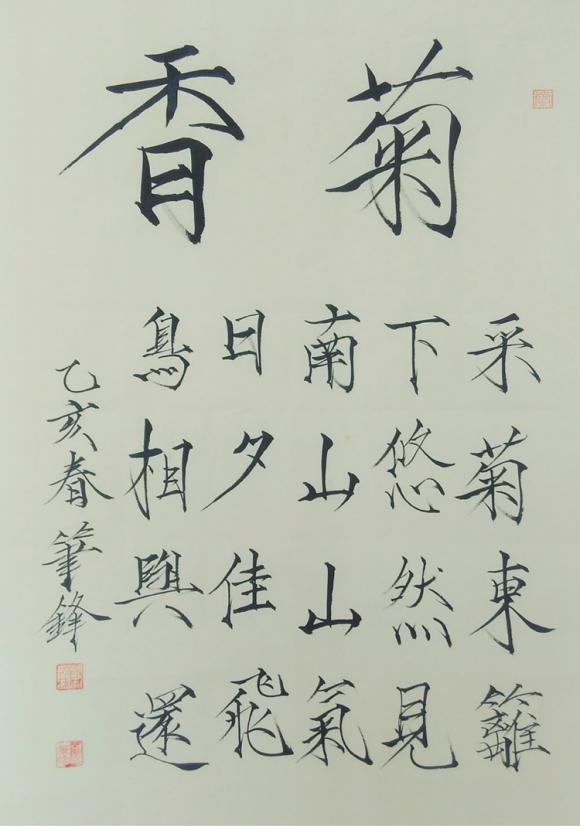 菊香
采菊東籬
下悠然見
南山山氣
日夕佳飛
鳥相與還
乙亥春筆鋒